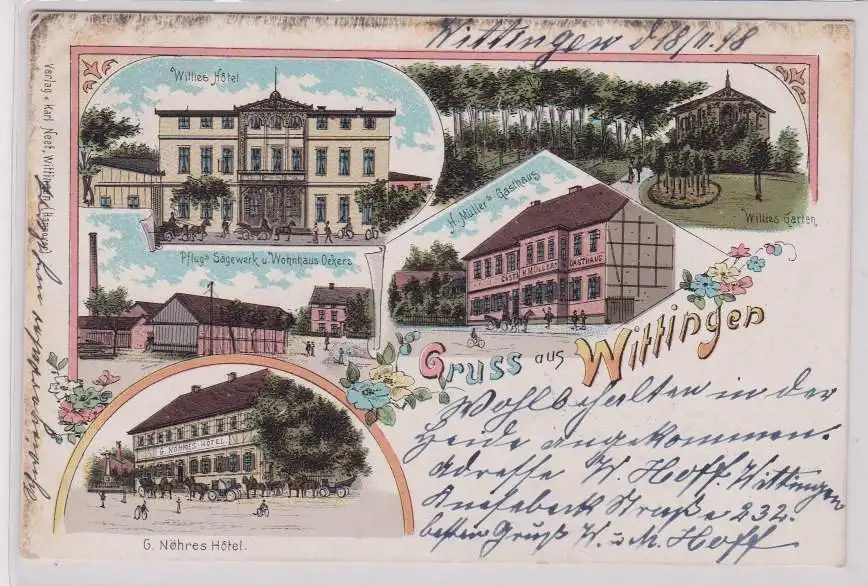 Wittingen d 18/11.98
Willies Hôtel
Verlag v. Karl Neef, Wittingen (Hannover)
H. Müller's Gasthaus
Willies Garten.
Pflug's Sägewerk u. Wohnhaus Oekers
GASTH. H. MÜLLER GASTHAUS
Gruss aus Wittingen
G. NÖHRES HÔTEL
G. Nöhres Hôtel.
Wohlbehalten in der
Heide angekommen.
Adresse W. Hoff. Wittingen
Knesebeck Straße 232.
besten Gruß W. u M. Hoff